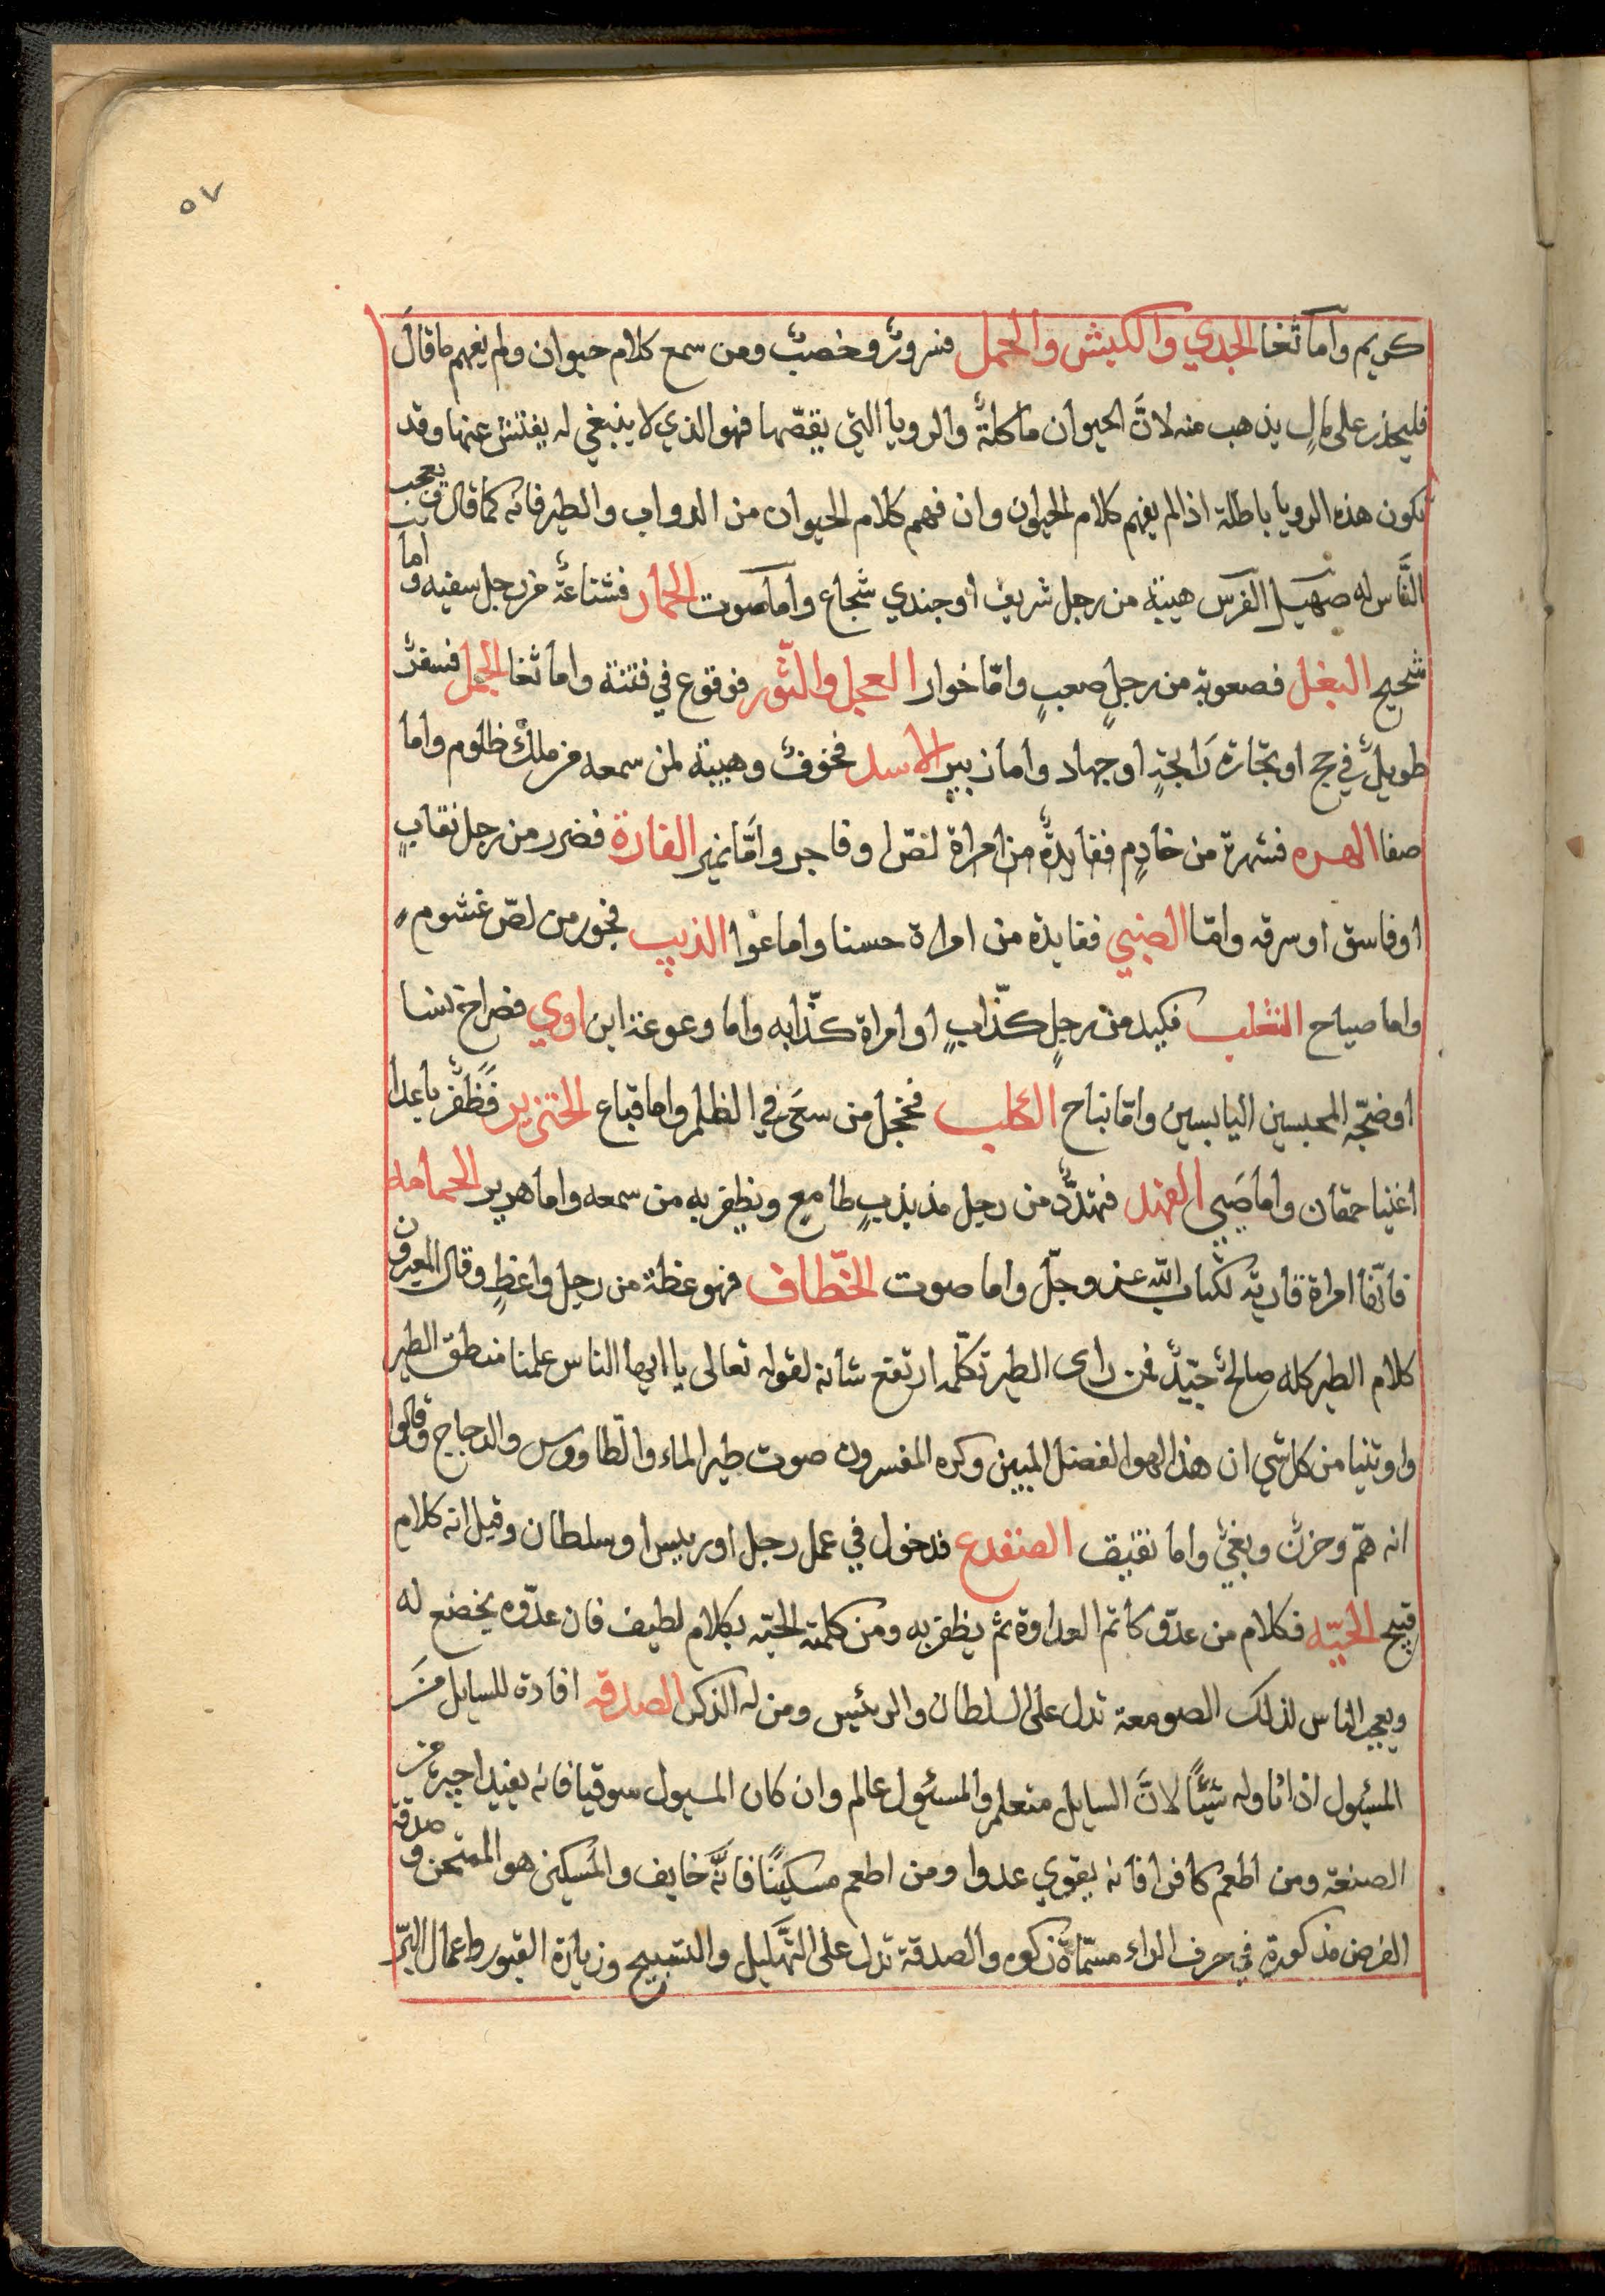 ٥٧
كريم وأما ثغا الجدي والكبش والحمل فسرورٌ وخصبٌ ومن سمع كلام حيوان ولم يفهم ما قالَ
فليحذر على مالٍ يذهب منه لانَّ الحيوان مأكلةٌ والرويا التي يقصّها فهو الذي لا ينبغي له يفتش عنها وقد
تكون هذه الرويا باطلة اذا لم يفهم كلام الحيوان وان فهم كلام الحيوان من الدواب والطير فانه كما قال يعجب
النَّاس له صهيل الفرس هيبة من رجل شريف أو جندي شجاع وأما صوت الحمار فشناعةٌ من رجل سفيه واما
شحيح البغل فصعوبة من رجلٍ صعبٍ وامّا خوار العجل والثّور فوقوع في فتنة واما ثغا الجمل فسفرٌ
طويلٌ في حج او تجارة رَابحةٍ او جهاد وأما زبير الاسد فخوفٌ وهيبة لمن سمعه من ملكٌ ظلوم واما
صغا الهره فشهرة من خادمٍ ففايدةٌ من امراة لصّ او فاجر وامَّا نمير الفارة فضرر من رجل نقابٍ
او فاسق او سرقه وامّا الضبي ففايدة من امراة حسنا واما عوا الذيب فجور من لصّ غشوم
واما صياح الثعلب فكيد من رجلٍ كذّابٍ او امراة كذّابه واما وعوعة ابن اوي فصراخ نسا
او ضجّه المحبسين اليابسين وامّا نباح الكلب فخجل من سعَى في الظلم واما قباع الخنزير فَظَفرٌ باعدا
اغنيا حمقان واما صَيي الفهد فتهدّدٌ من رجل مذبذبٍ طامعٍ ويظفر به من سمعه واما هدير الحمامه
فانّها امراة قاريه لكتاب الله عز وجلّ واما صوت الخطّاف فهو عظة من رجل واعظٍ وقال المعبرون
كلام الطير كله صالحٌ جيّدٌ فمن راى الطير تكلّمه ارتفع شأنه لقوله تعالى يا ايها الناس علمنا منطق الطير
واوتينا من كل شي ان هذا لهو الفضل المبين وكره المفسرون صوت طير الماء والطّاووس والدجاج وقالوا
انه همّ وحزنٌ وبغيٌ واما نقيق الضفدع فدخول في عمل رجل او رييس او سلطان وقيل انه كلام
قبيح الحيّه فكلام من عدّو كاتم العداوة ثم يظفر به ومن كلمته الحيّه بكلام لطيف فان عدّوه يخضع له
ويعجب الناس لذلك الصومعة تدل على السلطان والرئيس ومن له الذكر الصدقه افادة للسايل منَ
المسئول اذا ناوله شيئًا لانَّ السايل متعلم والمسئول عالم وان كان المسيول سوقيا فانه يفيد اجيره من
الصنعة ومن اطعم كافرا فانه يقوي عدوا ومن اطعم مسكينًا فانَّه خايف والمسكين هو الممتحن وصدقة
الفرض مذكورة في حرف الزاء مسمّاة زكوه والصدقة تدل على التهَّليل والتسبيح وزيارة القبور واعمال البِّر